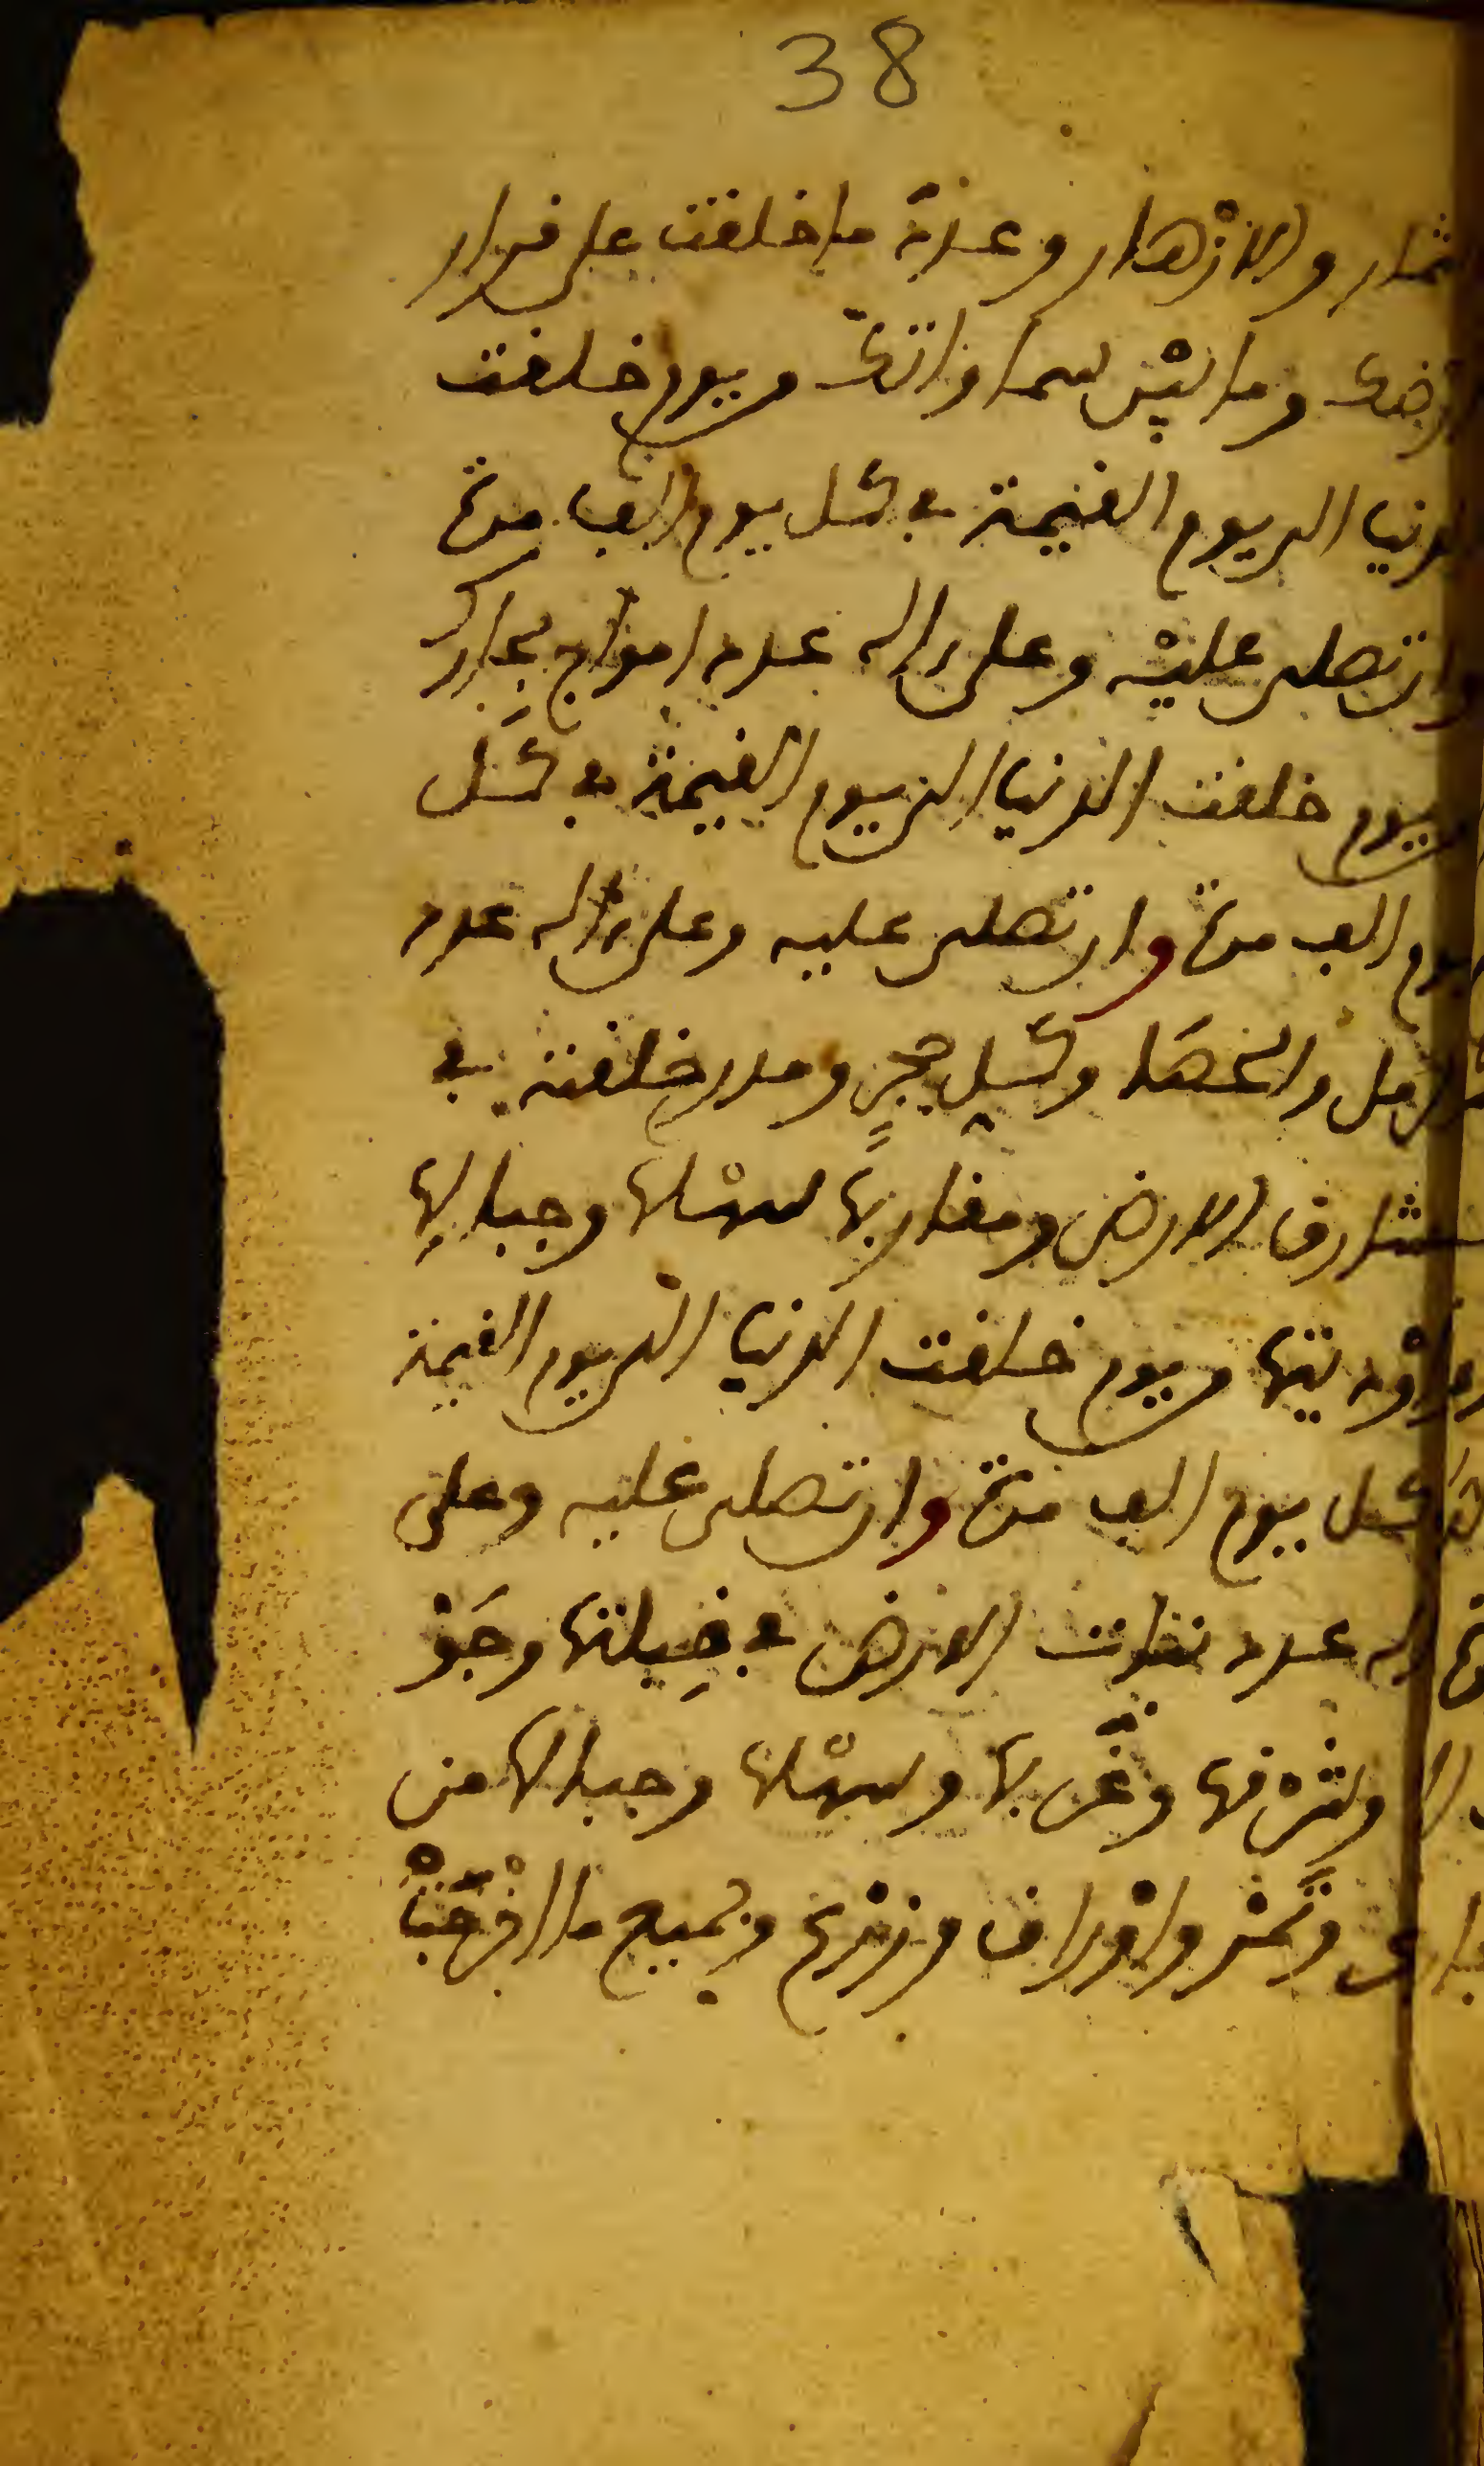 38
ثمار والازهار وعدد ما خلقت على قرار
ارضك وما بين سماواتك ويوم خلقت
الدنيا الى يوم القيمة في كل يوم الف مرة
وان تصلى عليه وعلى اله عدد امواج بحارك
ويوم خلقت الدنيا الى يوم القيمة في كل
يوم الف مرة وان تصلى عليه وعلى اله عدد
الرمل والحصا وكل حجر ومدر خلقته في
مشارق الارض ومغاربها سهلها وجبالها
واوديتها ويوم خلقت الدنيا الى يوم القيمة
كل يوم الف مرة وان تصلى عليه وعلى
اله عدد نبات الارض في قبلتها وجو
وشرقها وغربها وسهلها وجبالها من
وثمر واوراق وزرع وجميع ما اخرجت